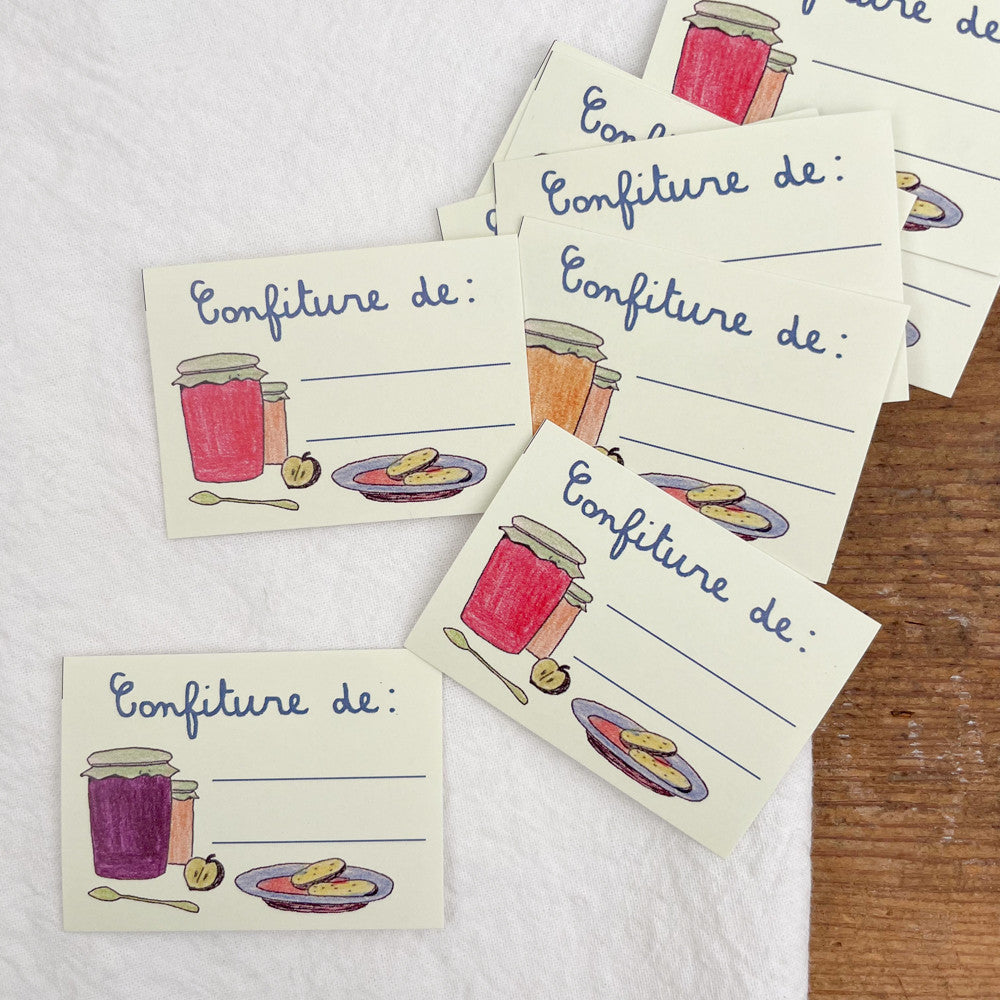 Confiture de:
Confiture de:
Confiture de:
Confiture de:
Confiture de: